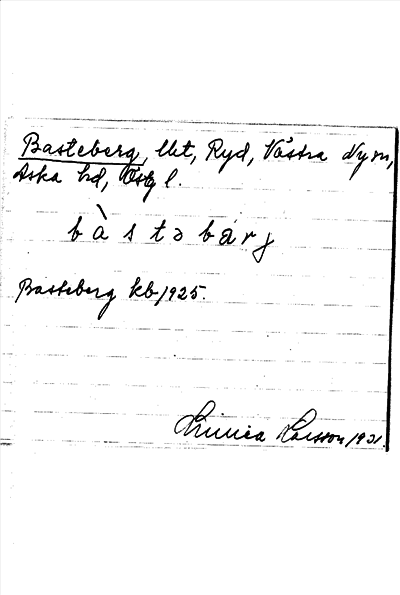 Basteberg, lht, Ryd, Västra Ny sn,
Aska hd, Östg l.
bàstəbärj
Basteberg kb 1925.
Linnea Larsson 1931.